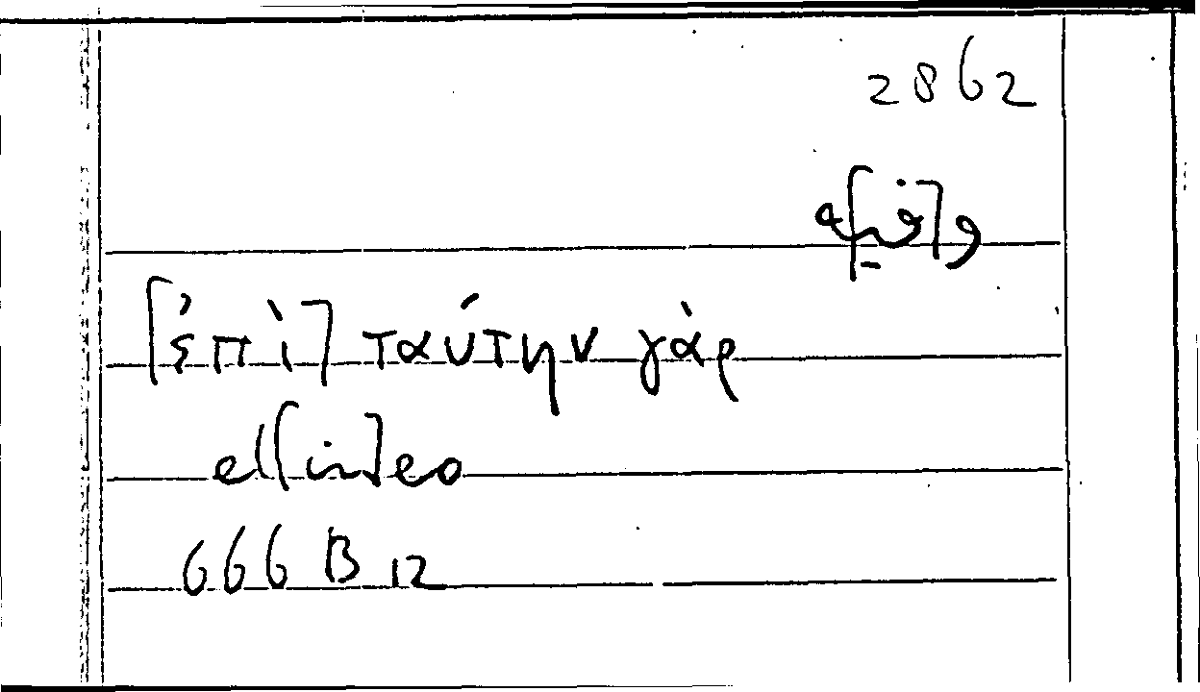 2862
[ἐπὶ] ταύτην γάρ
el[in]eo
666 B 12